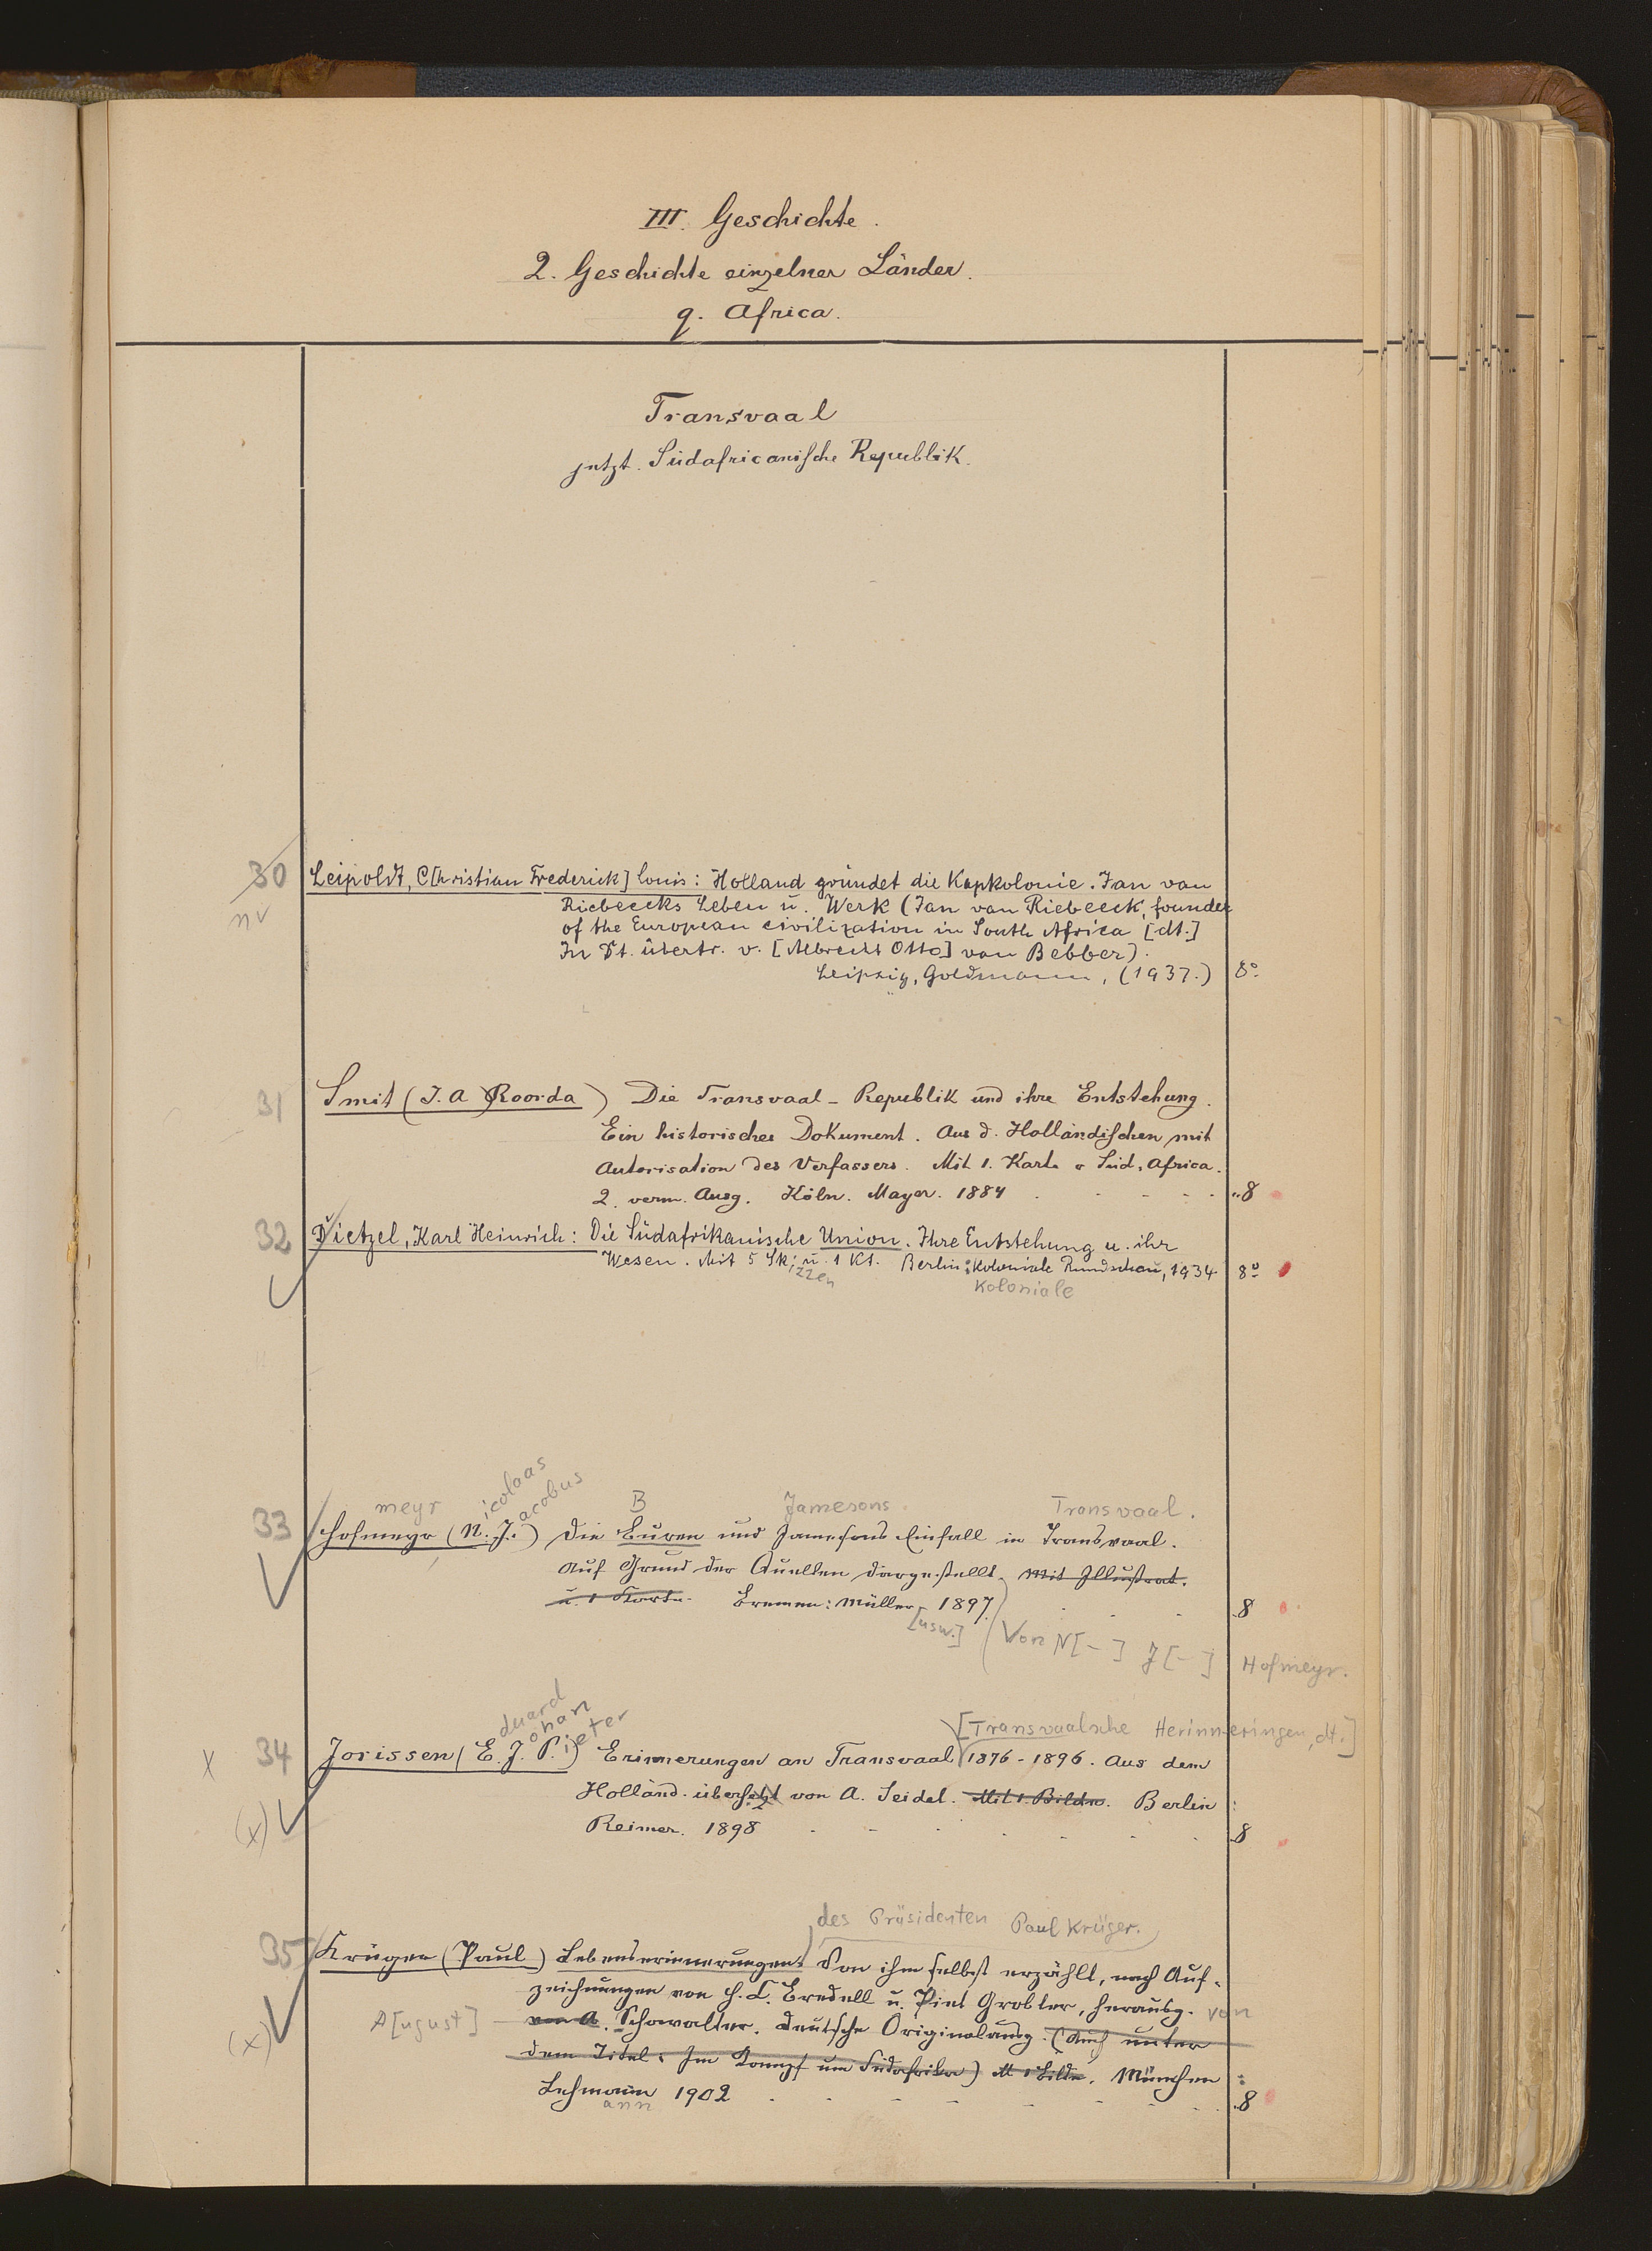 III. Geschichte.
2. Geschichte einzelner Länder.
q. Africa.
Transvaal
jetzt. Südafricanische Republik.
30 Leipoldt, C[hristian Frederick] Louis: Holland gründet die Kapkolonie. Jan van
nv
Riebeecks Leben u. Werk (Jan van Riebeeck, founder
of the European civilization in South Africa [dt.]
In Dt. übertr. v. [Albrecht Otto] van Bebber).
Leipzig, Goldmann, (1937.) 8°
31 Smit (J. A Roorda) Die Transvaal-Republik und ihre Entstehung.
Ein historisches Dokument. Aus d. Holländischen mit
Autorisation des Verfassers. Mit 1. Karte v Süd-Africa.
2. verm. Ausg. Köln. Mayer. 1884 8
32 Dietzel, Karl Heinrich: Die Südafrikanische Union. Ihre Entstehung u. ihr
Wesen. Mit 5 Sk; u. 1 Kt. Berlin: Koloniale Rundschau, 1934 8°
izzen Koloniale
meyr icolaas acobus B Jamesons Transvaal.
33 Hofmeyr (N. J.) Die Buren und Jamesons Einfall in Transvaal.
Auf Grund der Quellen dargestellt. Mit Illustrat.
u. 1 Karte. Bremen: Müller 1897. 8
[usw.] (Von N[-] J[-] Hofmeyr.
duard ohan ieter [Transvaalsche Herinneringen, dt.]
X 34 Jorissen (E. J. P.) Erinnerungen an Transvaal 1876-1896. Aus dem
Holländ. übersetzt von A. Seidel. Mit 1. Bildn. Berlin:
(x)
Reimer. 1898 8
des Präsidenten Paul Krüger.
35 Krüger (Paul) Lebenserinnerungen Von ihm selbst erzählt, nach Auf-
zeichnungen von H. C. Bredell u. Piet Grobler, herausg. von
A[ugust] von A. Schowalter. Deutsche Originalausg. (Auch unter
(x)
dem Titel: Im Kampf um Südafrika) M 1 Bildn. München:
Lehmann 1902 8
ann